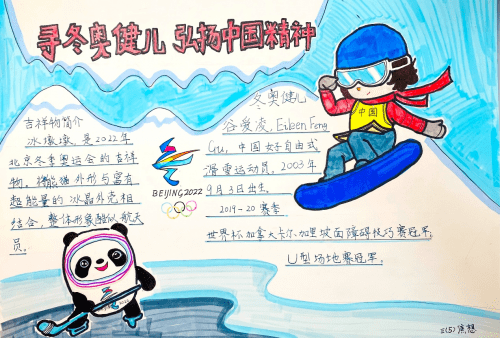 寻冬奥健儿 弘扬中国精神
吉祥物简介
冰墩墩，是2022年
北京冬季奥运会的吉祥
物。将熊猫外形与富有
超能量的冰晶外壳相
结合，整体形象酷似航天
员。
BEIJING 2022
冬奥健儿
谷爱凌，Eileen Feng
Gu，中国女子自由式
滑雪运动员，2003年
9月3日出生。
2019-20 赛季
世界杯加拿大卡尔加里坡面障碍技巧赛冠军
U型场地赛冠军。
中国